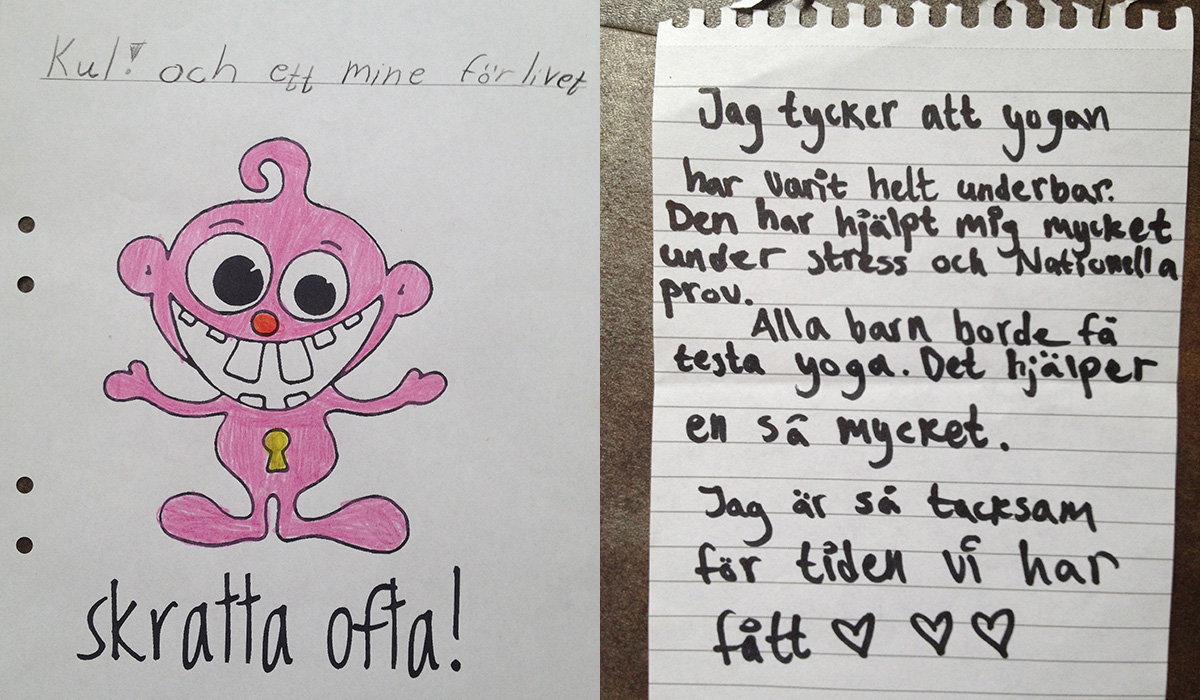 Kul! och ett mine för livet
skratta ofta!
Jag tycker att yogan
har varit helt underbar.
Den har hjälpt mig mycket
under stress och Nationella
prov.
Alla barn borde få
testa yoga. Det hjälper
en så mycket.
Jag är så tacksam
för tiden vi har
fått ♡ ♡ ♡